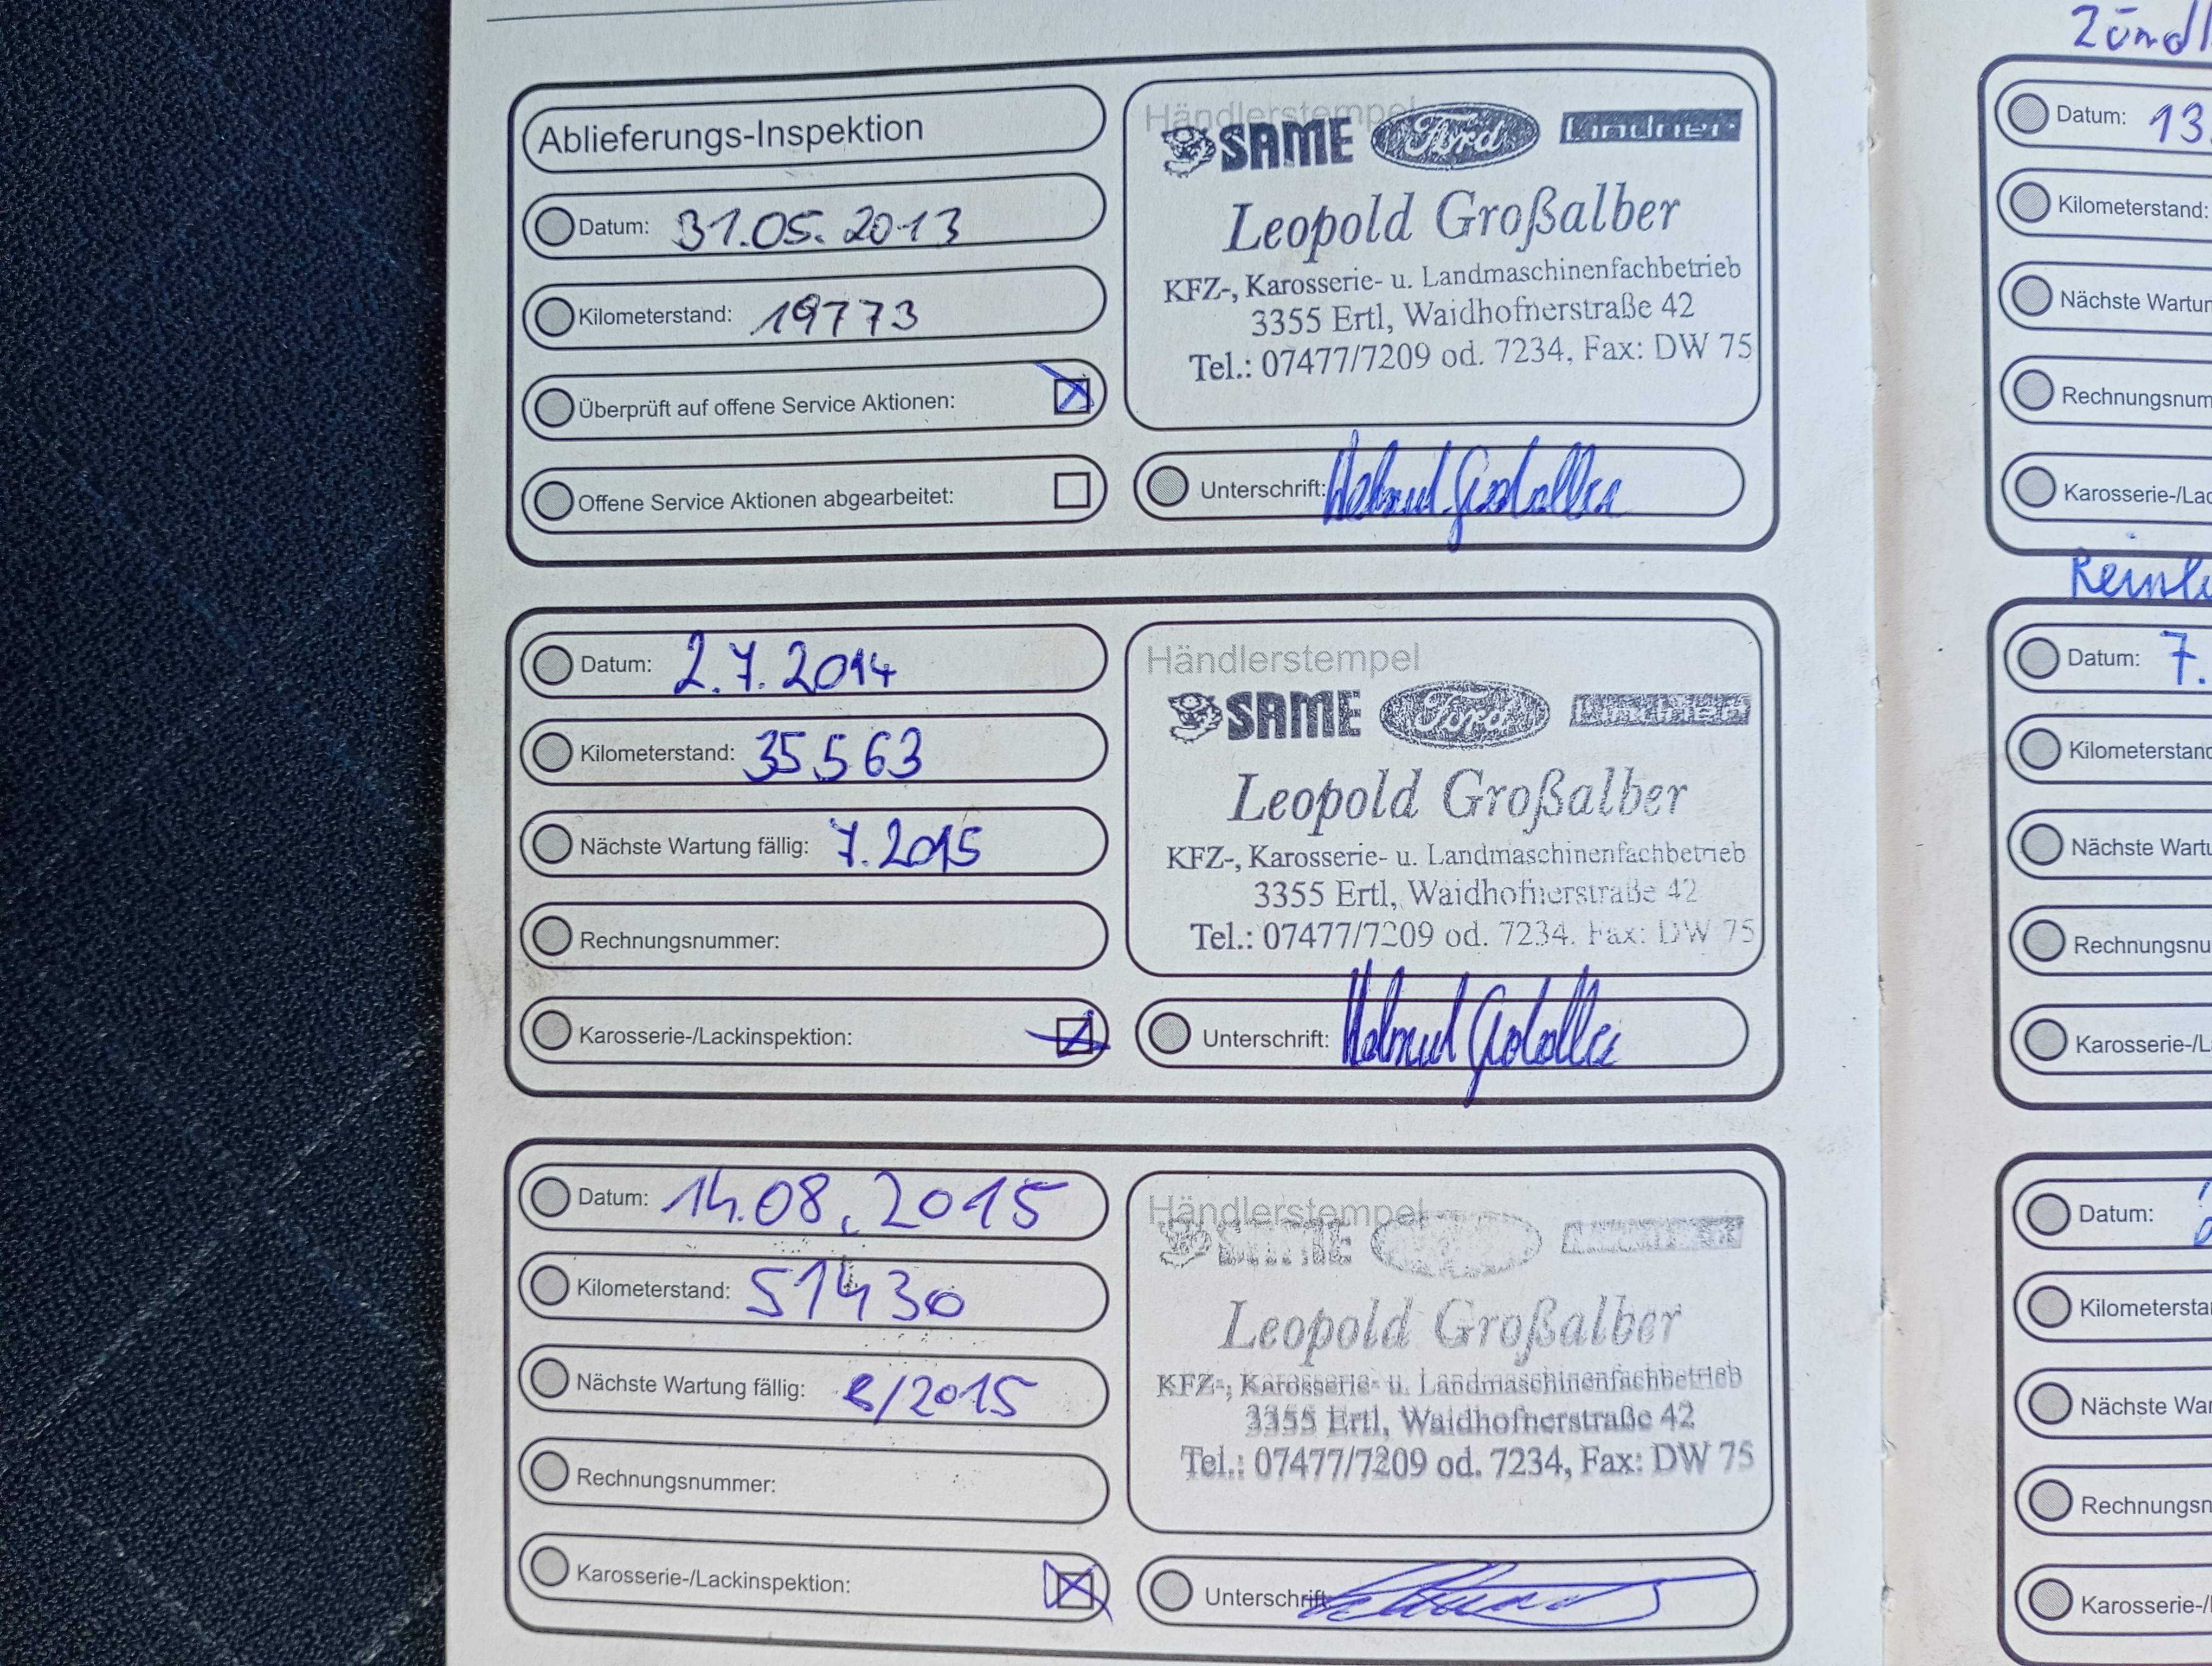 Ablieferungs-Inspektion
Datum: 31.05.2013
Kilometerstand: 19773
Überprüft auf offene Service Aktionen:
Offene Service Aktionen abgearbeitet:
Händlerstempel
SAME Ford Lindner
Leopold Großalber
KFZ-, Karosserie- u. Landmaschinenfachbetrieb
3355 Ertl, Waidhofnerstraße 42
Tel.: 07477/7209 od. 7234, Fax: DW 75
Unterschrift:
Datum: 2.7.2014
Kilometerstand: 35563
Nächste Wartung fällig: 7.2015
Rechnungsnummer:
Karosserie-/Lackinspektion:
Händlerstempel
SAME Ford Lindner
Leopold Großalber
KFZ-, Karosserie- u. Landmaschinenfachbetrieb
3355 Ertl, Waidhofnerstraße 42
Tel.: 07477/7209 od. 7234. Fax: DW 75
Unterschrift:
Datum: 14.08.2015
Kilometerstand: 51430
Nächste Wartung fällig: 8/2015
Rechnungsnummer:
Karosserie-/Lackinspektion:
Händlerstempel
SAME
Leopold Großalber
KFZ-, Karosserie- u. Landmaschinenfachbetrieb
3355 Ertl, Waidhofnerstraße 42
Tel.: 07477/7209 od. 7234, Fax: DW 75
Unterschrift:
Datum: 13.
Kilometerstand:
Nächste Wartun
Rechnungsnum
Karosserie-/Lac
Datum: 7.
Kilometerstand
Nächste Wartu
Rechnungsnu
Karosserie-/L
Datum:
Kilometersta
Nächste War
Rechnungsn
Karosserie-/